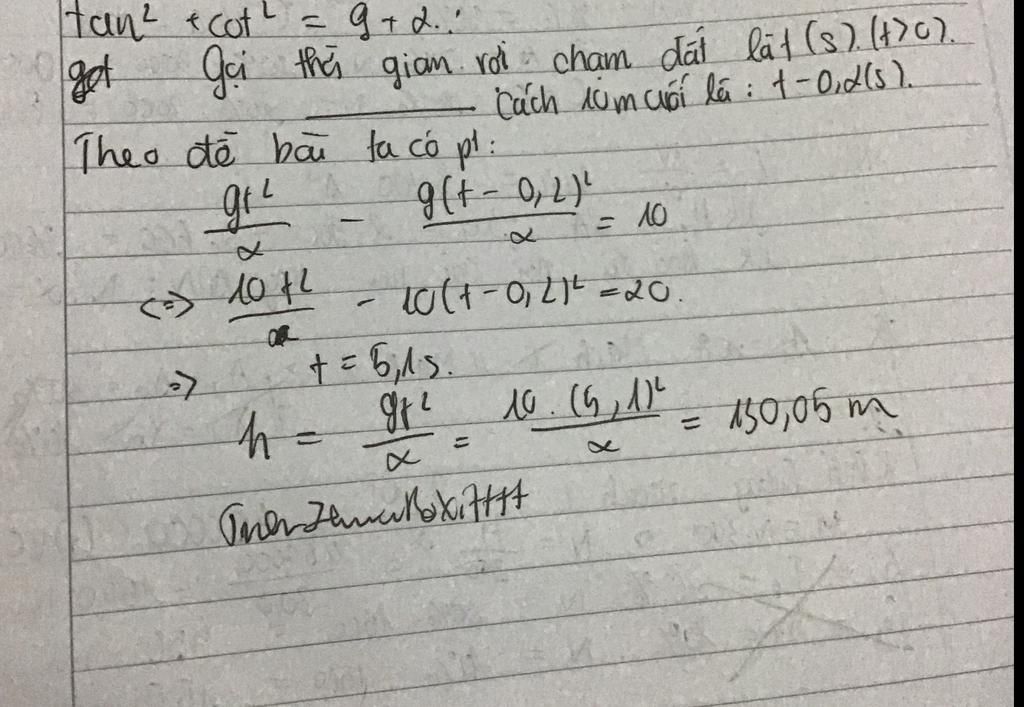 tan² + cot² = 9 + 2.
Gọi thời gian rơi chạm đất là t (s). (t>0).
Cách 10m cuối là: t - 0,2(s).
Theo đề bài ta có pt:
gt²/2 - g(t - 0,2)²/2 = 10
<=> 10t² - 10(t - 0,2)² = 20.
=> t = 5,1s.
h = gt²/2 = 10.(5,1)²/2 = 130,05 m